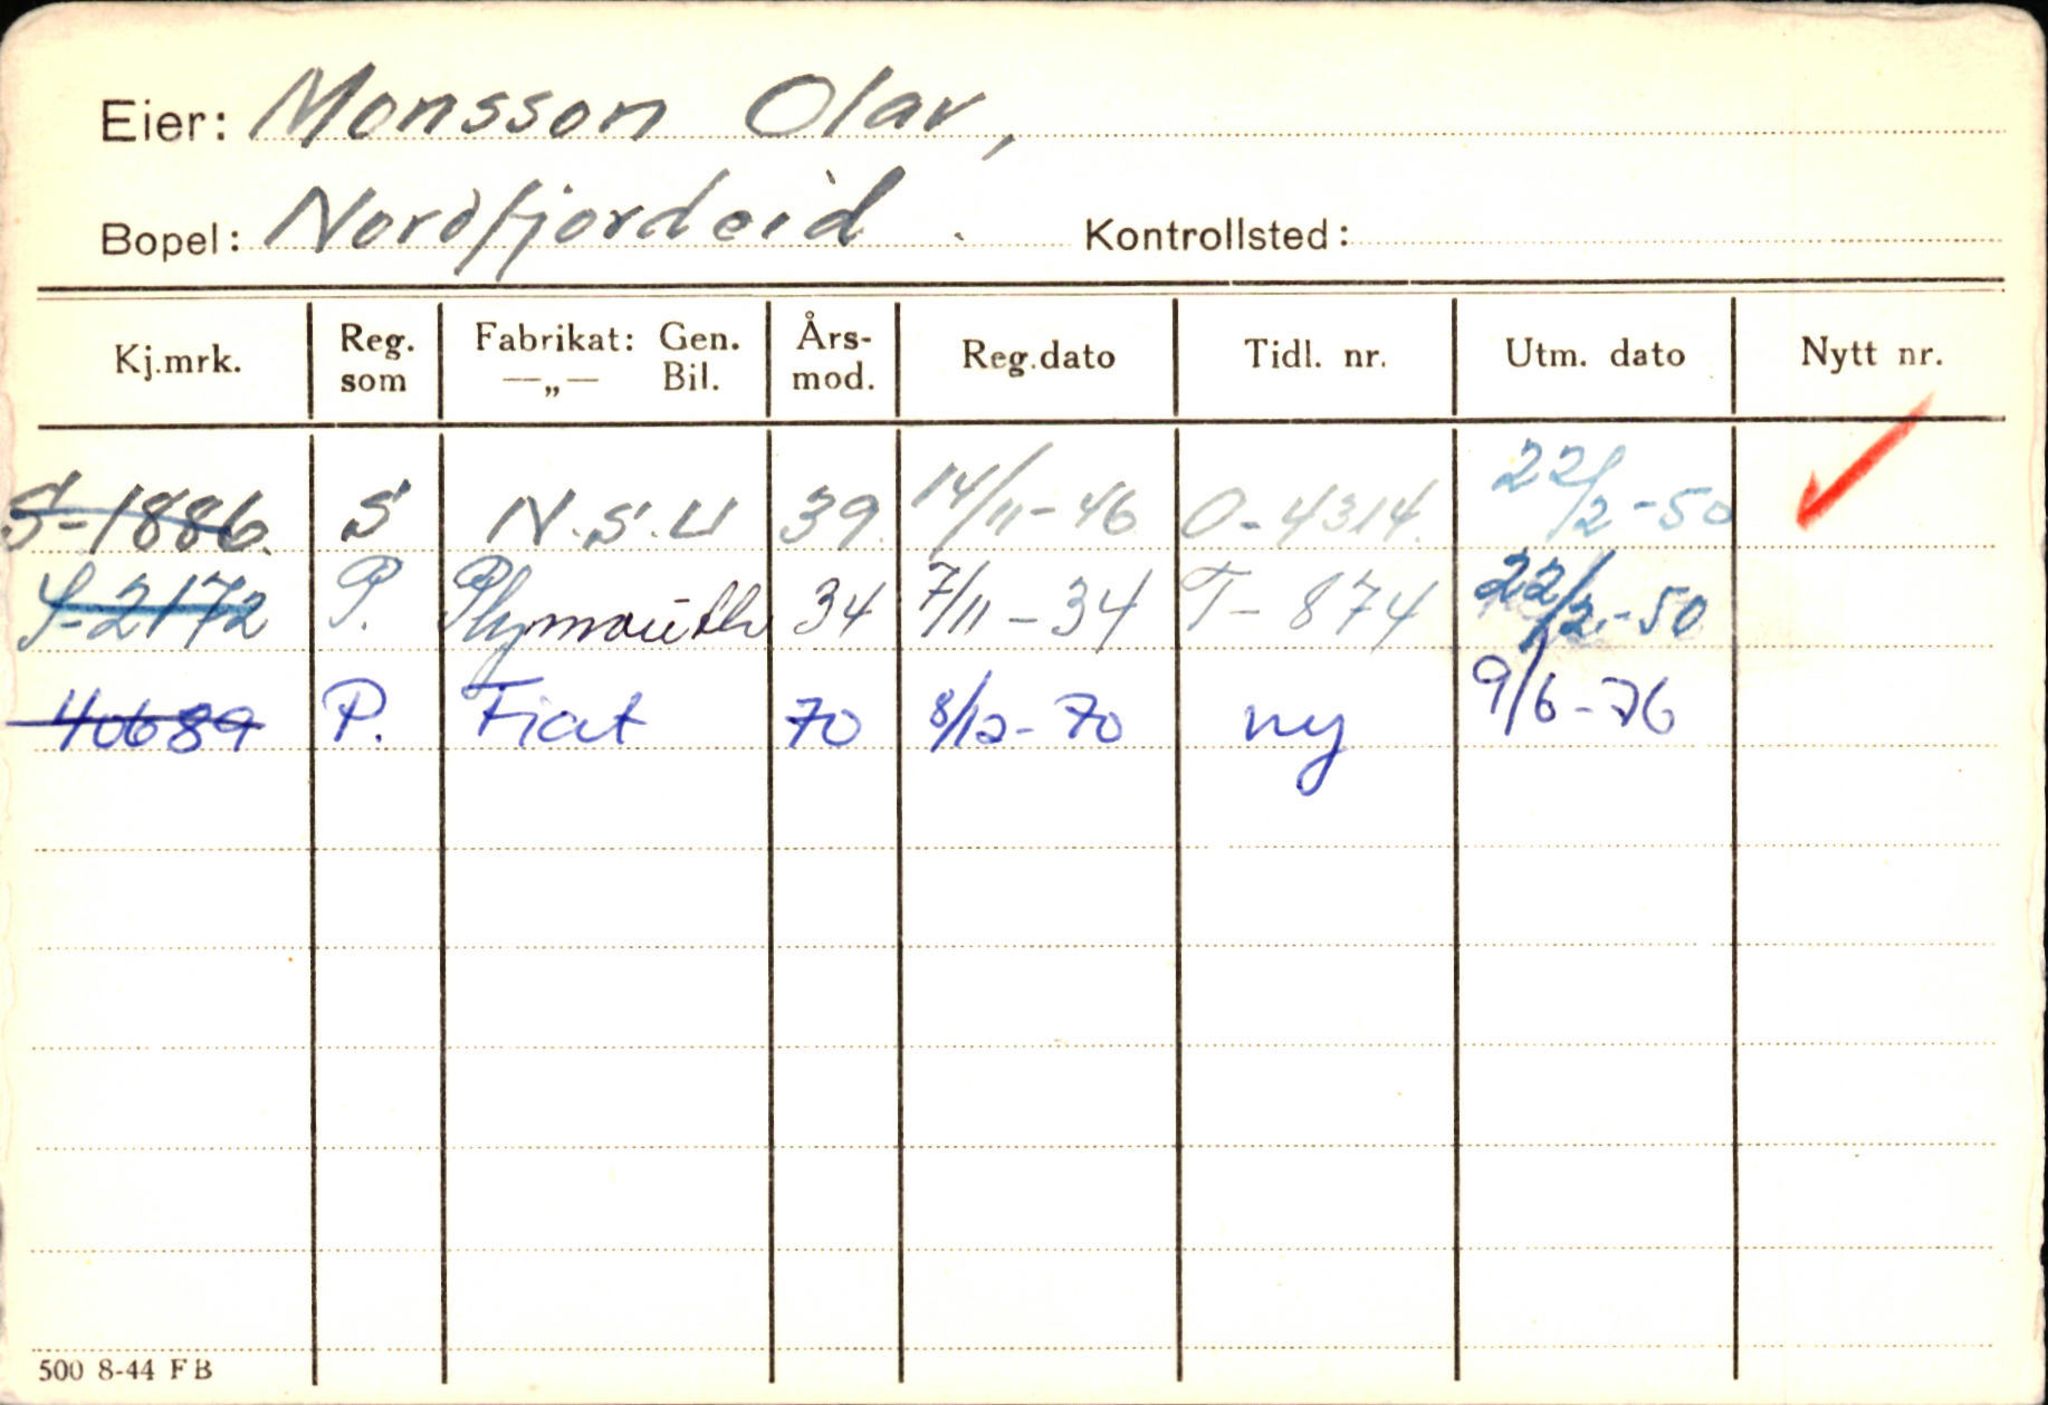 Eier: Monsson Olav,
Bopel: Nordfjordeid . Kontrollsted:
Kj.mrk. Reg. som Fabrikat: Gen. —„— Bil. Års- mod. Reg.dato Tidl. nr. Utm. dato Nytt nr.
S-1886. S N.S.U 39. 14/11-46 O-4314. 22/2-50
S-2172 P. Plymouth 34 7/11-34 T-874 22/2.-50
40689 P. Fiat 70 8/12-70 ny 9/6-76
500 8-44 FB